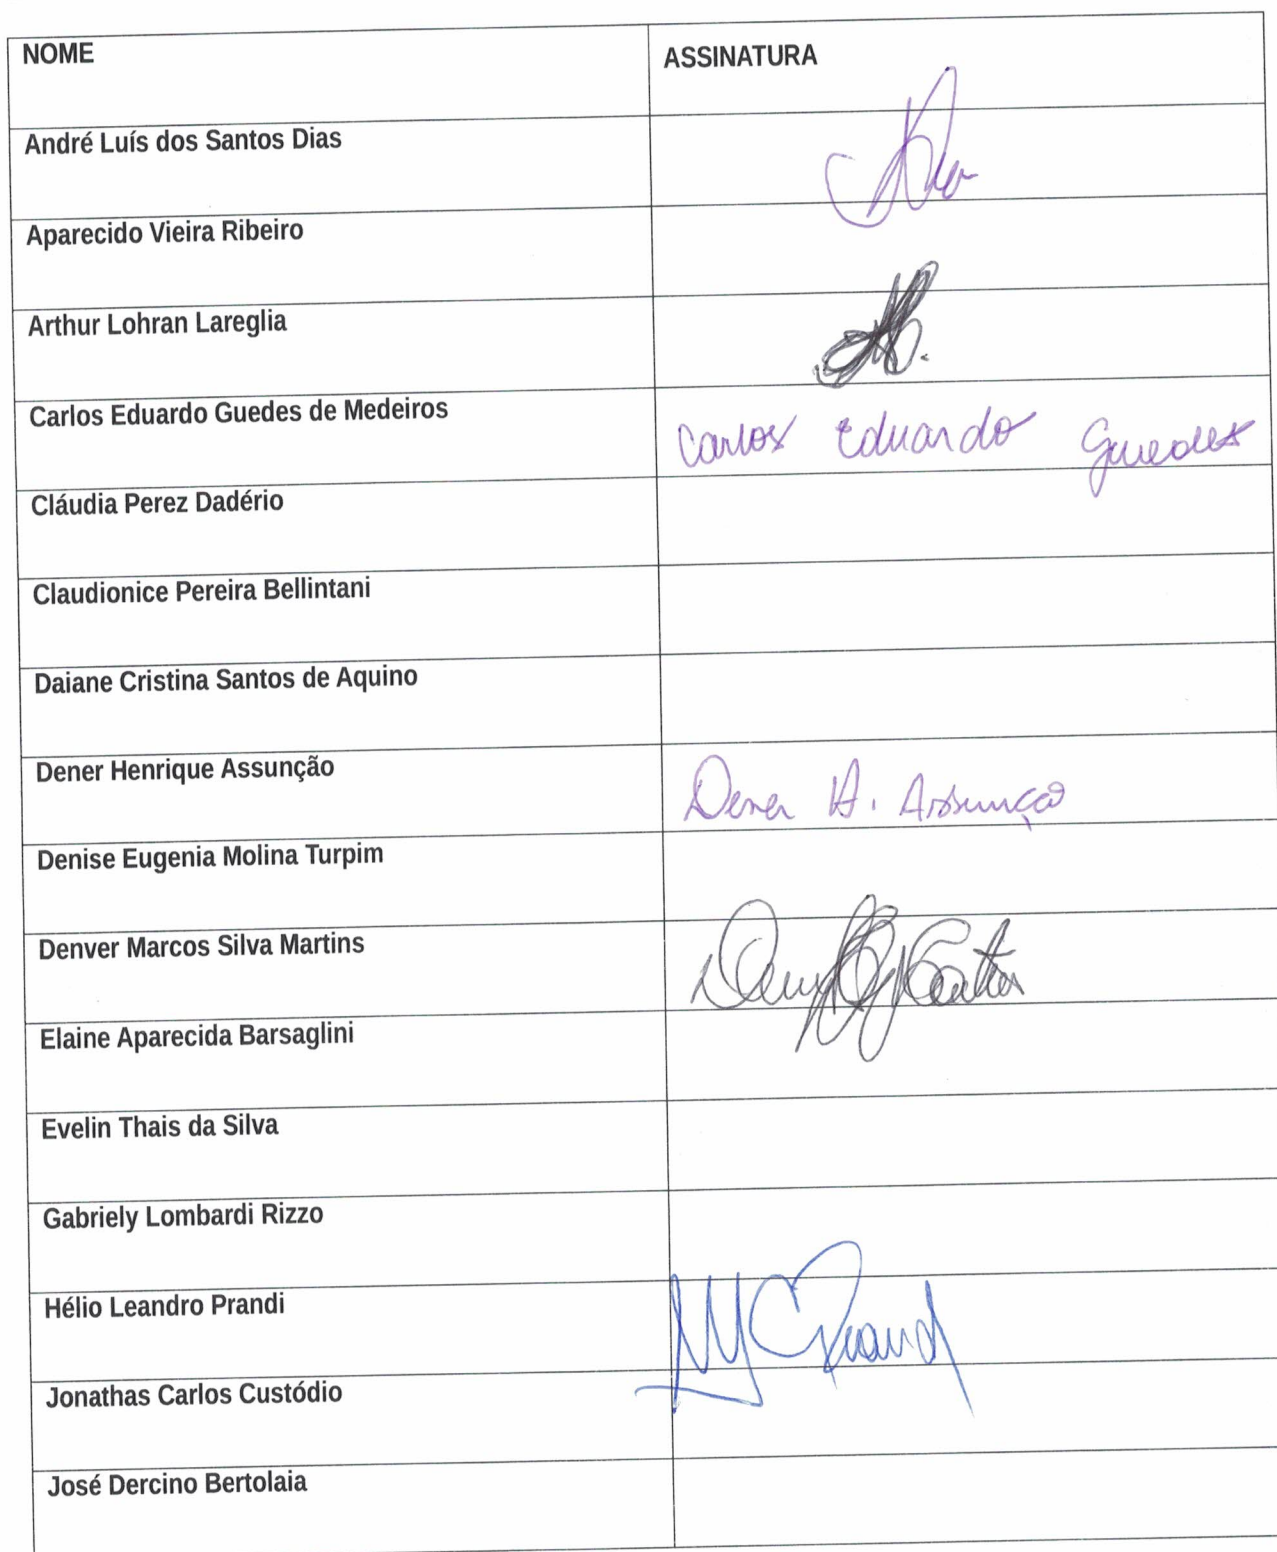 NOME ASSINATURA
André Luís dos Santos Dias
Aparecido Vieira Ribeiro
Arthur Lohran Lareglia
Carlos Eduardo Guedes de Medeiros Carlos Eduardo Guedes
Cláudia Perez Dadério
Claudionice Pereira Bellintani
Daiane Cristina Santos de Aquino
Dener Henrique Assunção Dener H. Assunção
Denise Eugenia Molina Turpim
Denver Marcos Silva Martins
Elaine Aparecida Barsaglini
Evelin Thais da Silva
Gabriely Lombardi Rizzo
Hélio Leandro Prandi
Jonathas Carlos Custódio
José Dercino Bertolaia